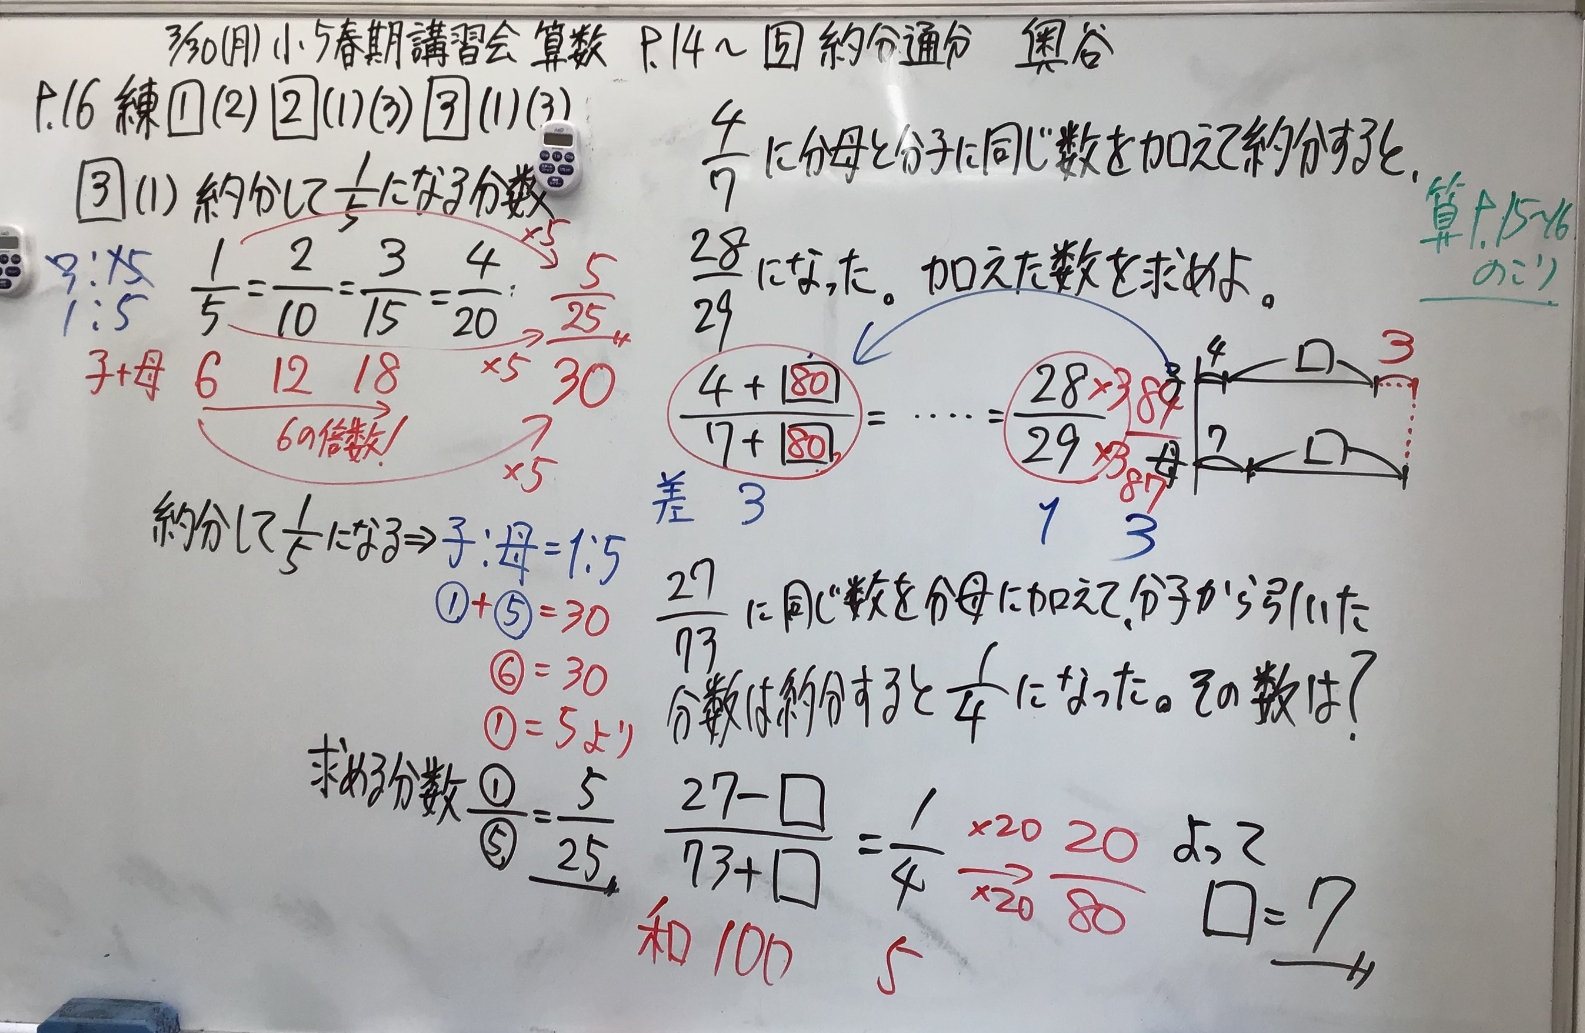 3/30(月)小5春期講習会 算数 P.14～5 約分通分 奥谷
P.16 練1(2) 2(1)(3) 3(1)(3)
3(1) 約分して1/5になる分数
1/5 = 2/10 = 3/15 = 4/20 … 5/25
×5
×5
1:5
子+母 6 12 18 30
6の倍数!
×5
約分して1/5になる⇒子:母=1:5
①+⑤=30
⑥=30
①=5より
求める分数 ①/⑤ = 5/25
4/7に分母と分子に同じ数を加えて約分すると、
28/29になった。加えた数を求めよ。
(4+80)/(7+80) = ‥‥‥ = 28/29 ×3 84 ×3 87
差 3 1 3
子 4 □ 3
母 7 □
27/73に同じ数を分母に加えて、分子から引いた
分数は約分すると1/4になった。その数は?
(27-□)/(73+□) = 1/4 ×20 → ×20 20/80 よって
□=7
和100 5
算P.15～16
のこり